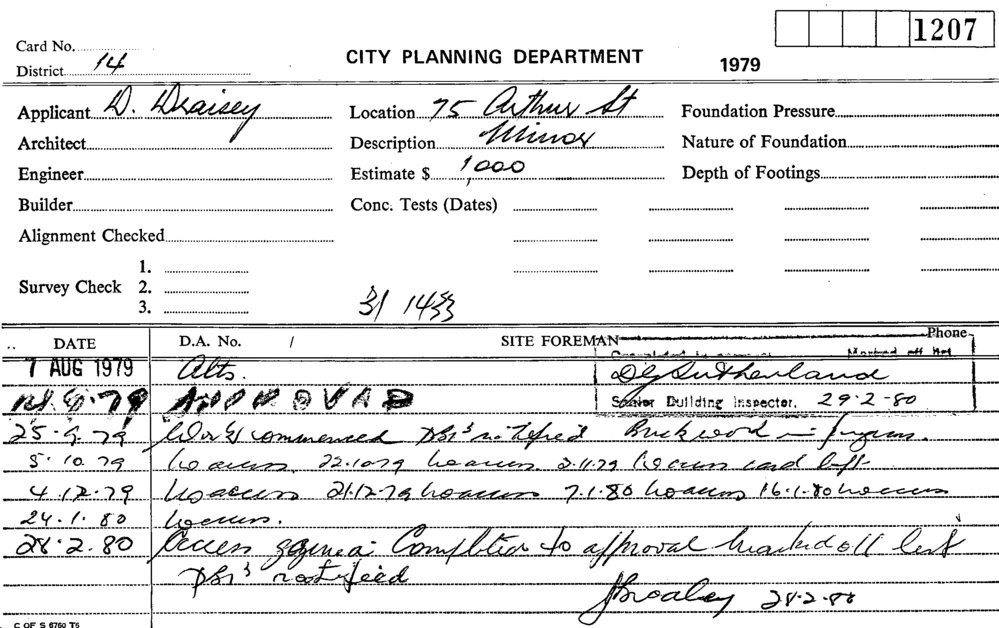 1207
Card No.
District 14 CITY PLANNING DEPARTMENT 1979
Applicant D. Draisey Location 75 Arthur St Foundation Pressure
Architect Description Minor Nature of Foundation
Engineer Estimate $ 1,000 Depth of Footings
Builder Conc. Tests (Dates)
Alignment Checked
1.
Survey Check 2.
3.
31 1433
DATE D.A. No. / SITE FOREMAN Phone
Marked off list
7 AUG 1979 Alts. Sutherland
.79 APPROVAD Senior Building Inspector. 29-2-80
25.9.79 Work commenced DBI's notified Brickwork in
5.10.79 no access. 22.10.79 no access. 2.11.79 no access card left
4.12.79 No access 21.12.79 no access 7.1.80 no access 16.1.80 no access
24.1.80 no access.
28.2.80 Access gained. Completed to approval marked off list
DBI's notified
28.2.80
C OF S 6760 T6